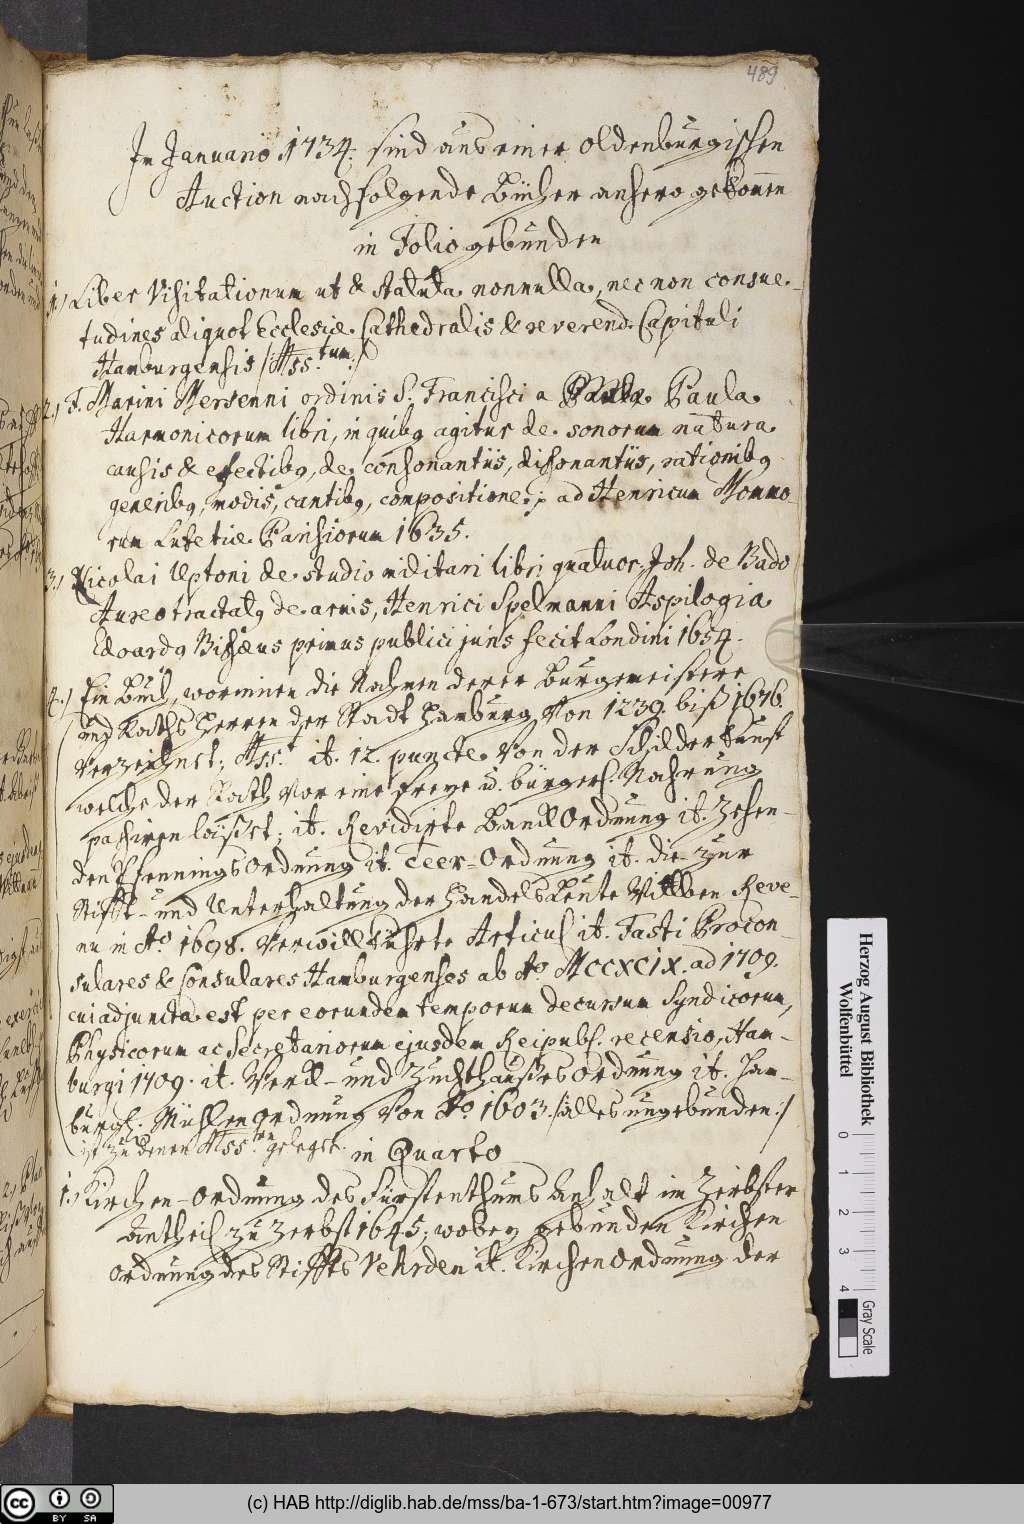 489
In Januario 1734. sind aus einer Oldenburgischen
Auction nachfolgende Bücher anhero gekomen
in Folio gebunden
1.) Liber Visitationum ut & statuta nonnulla, nec non consue-
tudines aliquot Ecclesiæ Cathedralis & reverend. Capituli
Hamburgensis /:Mss.tum:/
2.) F. Marini Mersenni ordinis S. Francisci a Paula
Harmonicorum libri, in quibg agitur de sonorum natura
causis & efectibg, de consonantiis, dissonantiis, rationibg
generibg, modis, cantibg, compositione; ad Henricum Mommo-
rum Lutetiæ Parisiorum 1635.
3.) Nicolai Uptoni de studio militari libri quatuor, Joh. de Bado
Aureo tractatg de armis, Henrici Spelmanni Aspilogia
Edoardg Bissæus primus publici juris fecit Londini 1654.
4.) Ein Buch, worinnen die Nahmen derer Burgemeistere
und Raths Herren der Stadt Hamburg von 1239. biß 1676.
verzeichnet; Mss.t it. 12. puncte von der Schilderkunst
welche der Rath vor eine freye u. bürgerl. Nahrung
passiren läßet; it. Revidirte BanckOrdnung it. Zehen-
den PfenningsOrdnung it. Teer-Ordnung it. die zur
Stifft- und Unterhaltung der HandelsLeute Wittben Reve-
nu in Ao 1698. verwillkührte Articul it. Fasti Procon-
sulares & Consulares Hamburgenses ab Ao MCCXCIX. ad 1709.
cui adjuncta est per eorundem temporum decursum Syndicorum,
Physicorum ac Secretariorum ejusdem Reipubl. recensio, Ham-
burgi 1709. it. Werck- und ZuchthaußesOrdnung it. Ham-
burgl. MühlenOrdnung von Ao 1603. /:alles ungebunden:/
ist zu denen Mss.ten geleget.
in Quarto
1.) Kirchen-Ordnung des Fürstenthums Anhalt im Zerbster
Antheil zu Zerbst 1645; wobey gebunden Kirchen
Ordnung des Stiffts Vehrden it. KirchenOrdnung der
Herzog August Bibliothek
Wolfenbüttel
0 1 2 3 4
Gray Scale
(c) HAB http://diglib.hab.de/mss/ba-1-673/start.htm?image=00977
cc BY SA